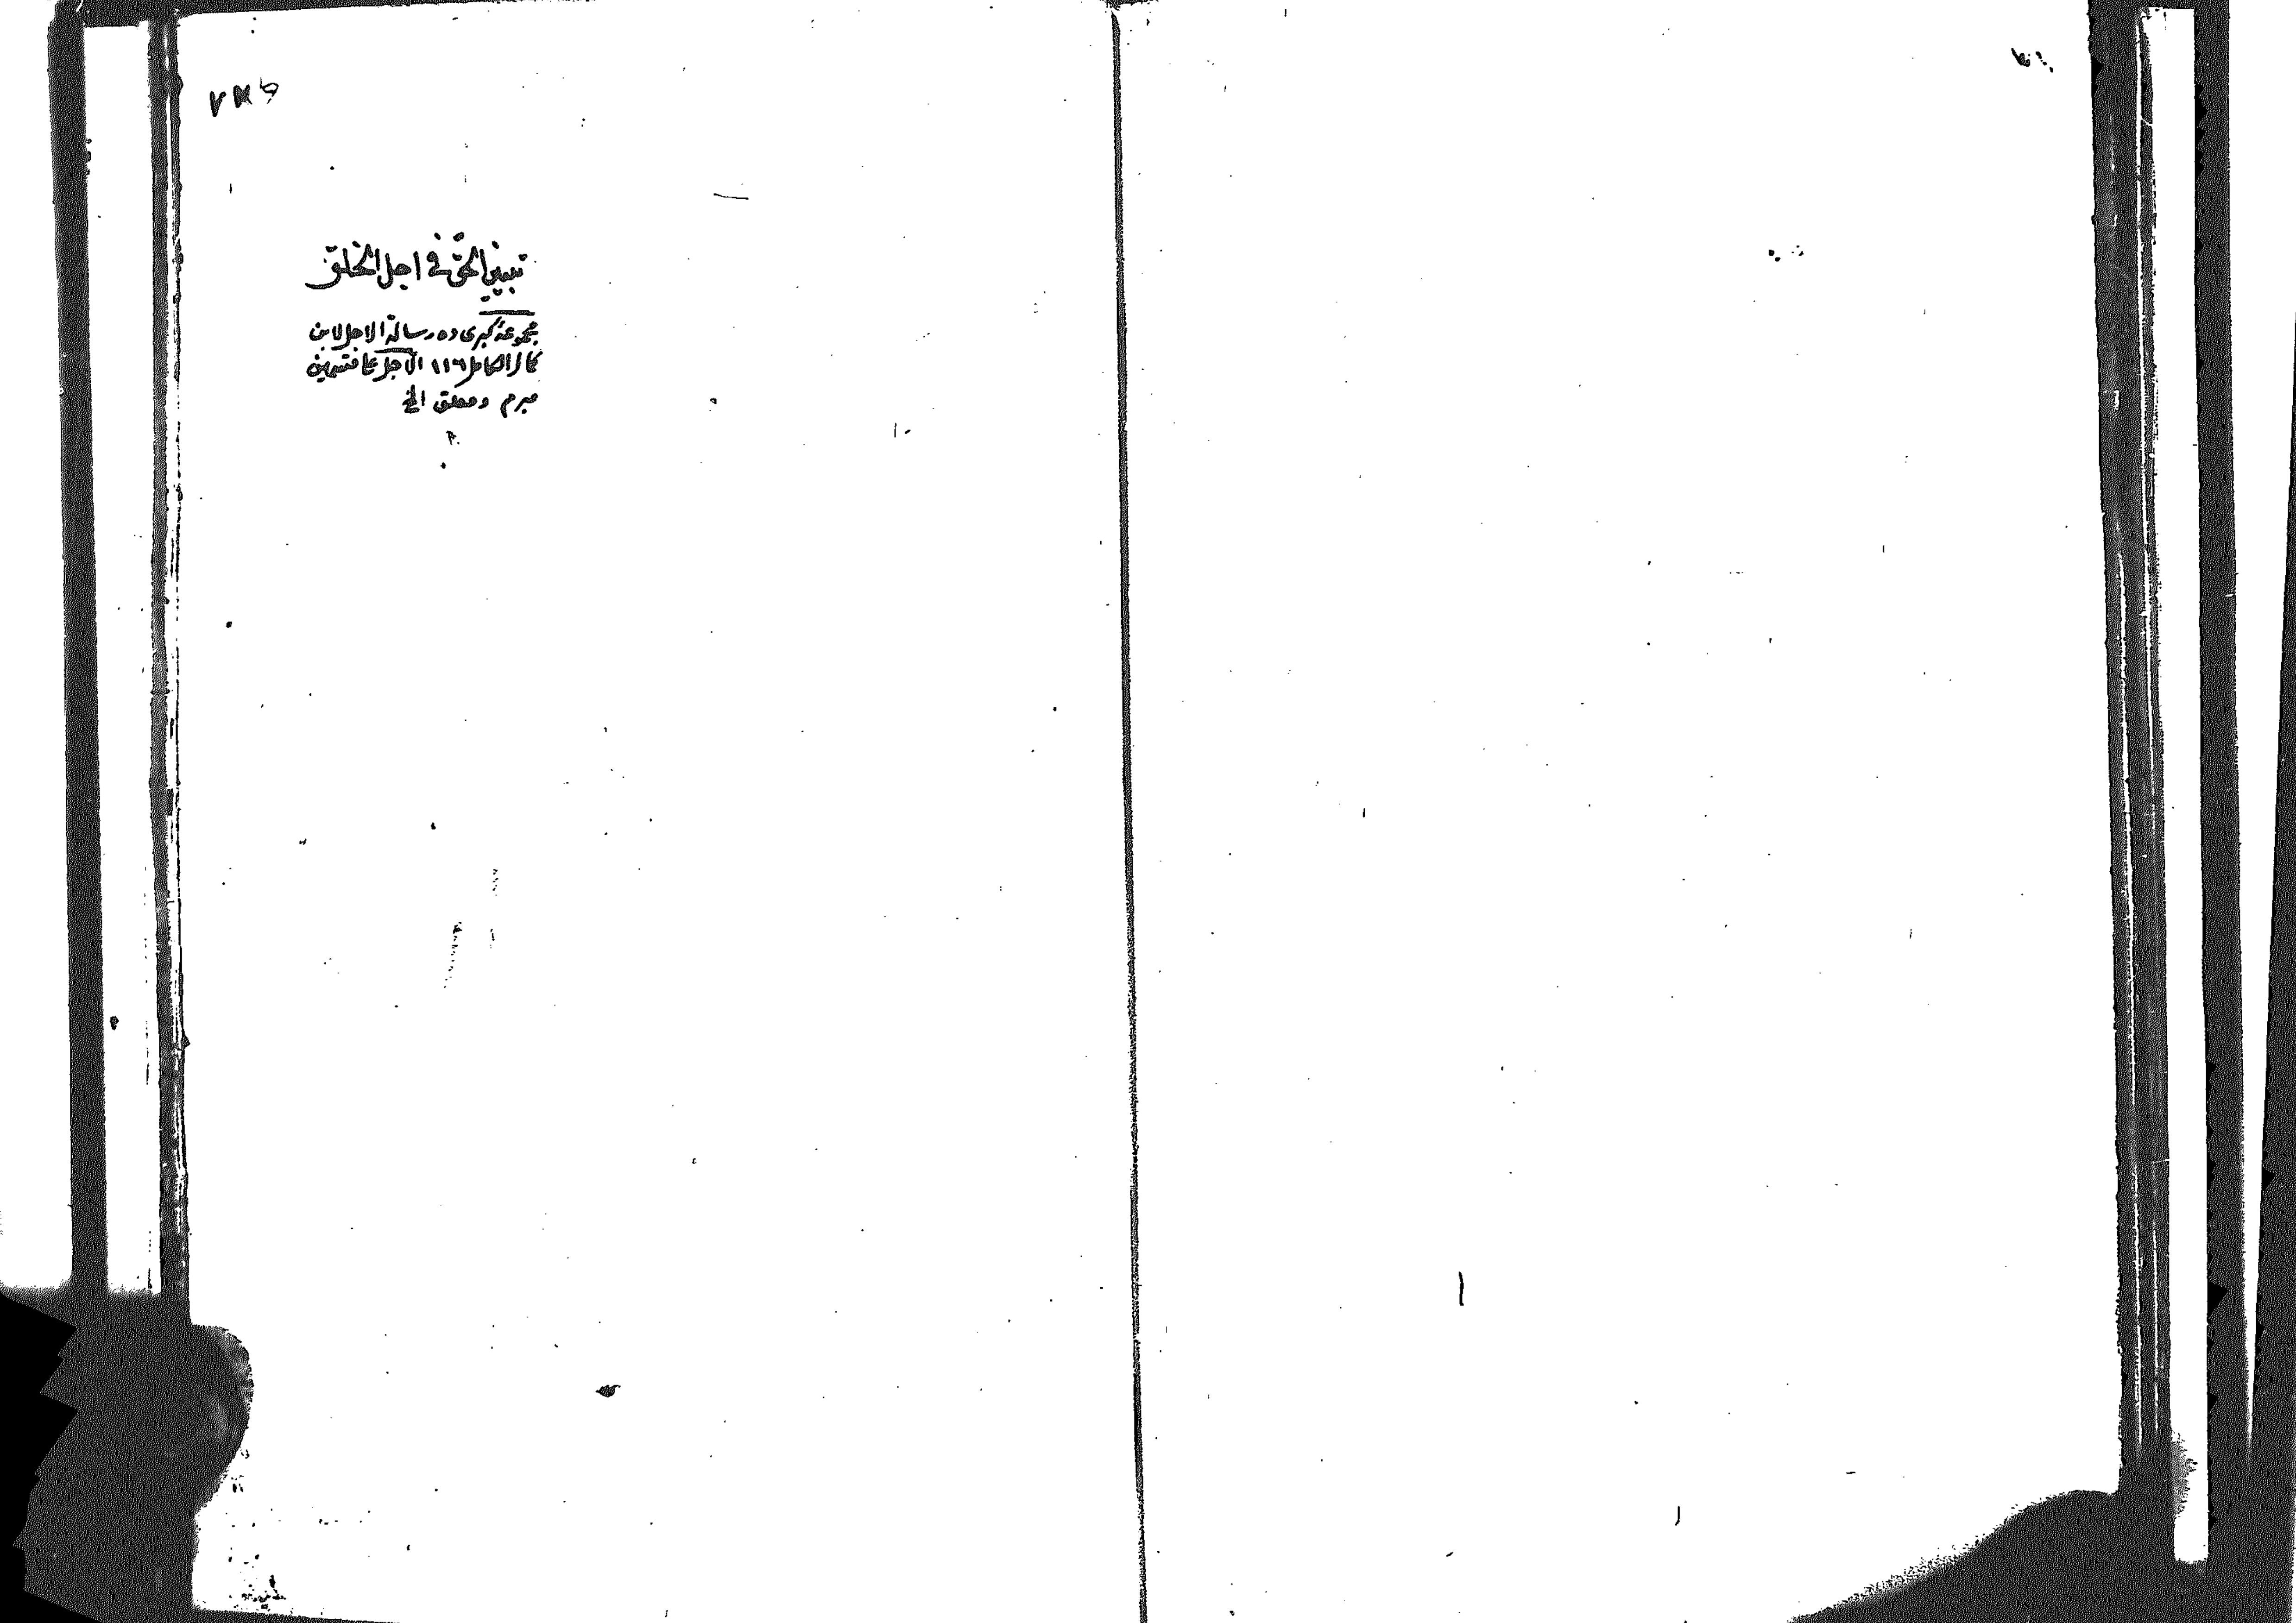 تبيين الحق في اجل الخلق
مجموعۀ كبرى ده رسالة الاجل لابن
كمال الكامل ١١٦ الاجل على قسمين
مبرم ومعلق الخ